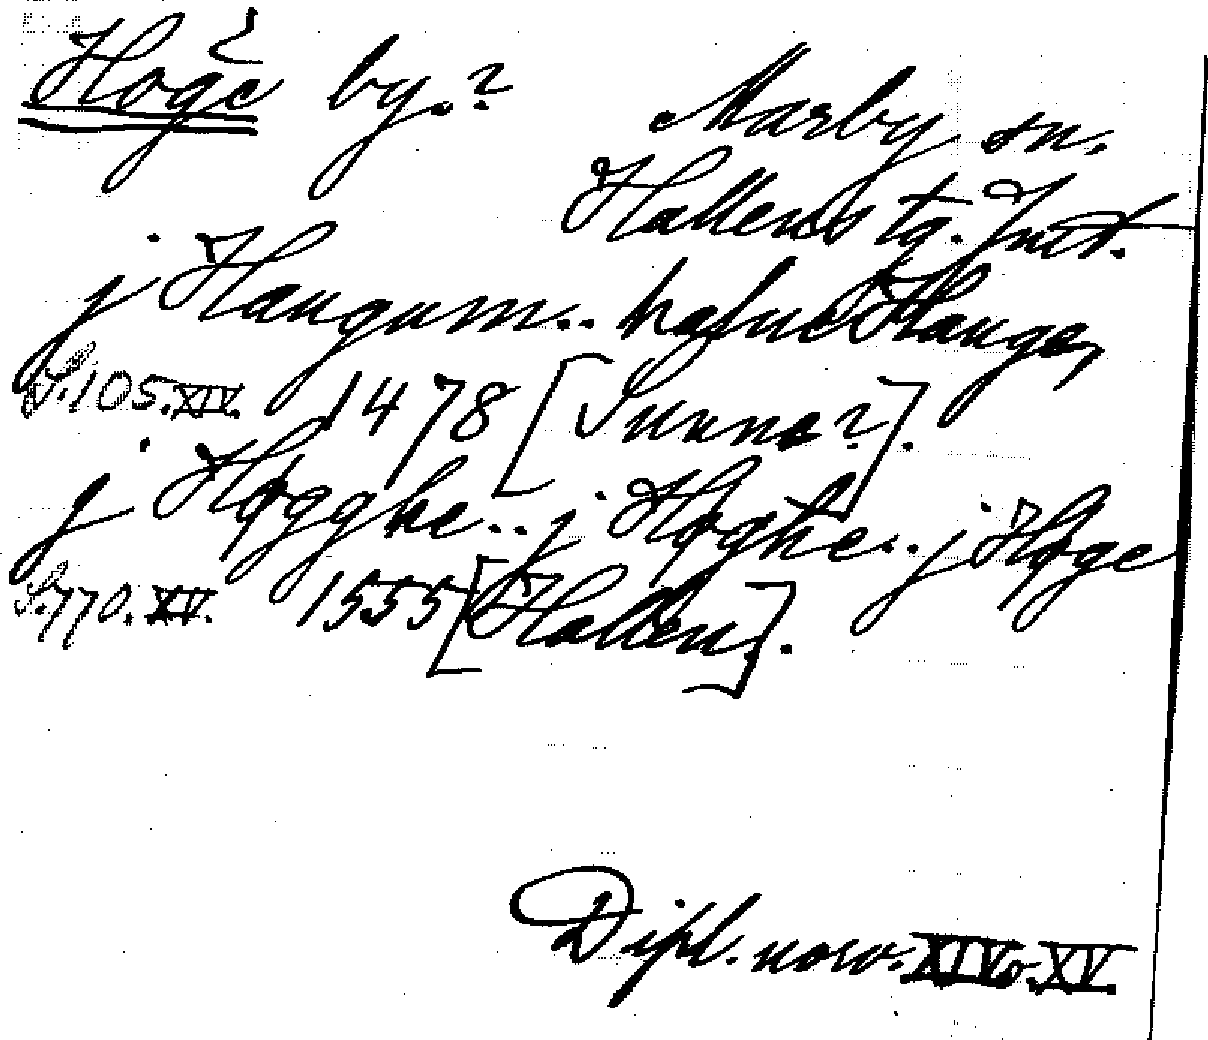 Höge by.?
Marby sn.
Hallens tg. Jmt.
j Haugum.. hafue Hauge,
S.105.XIV. 1478 [Sunne?].
j Høgghe.. j Høghe.. j Høge
S.770.XV. 1555 [Hallen].
Dipl. norv. XIV o. XV.